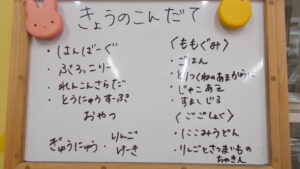 きょうのこんだて
・はんばーぐ
・ぶろっこりー
・れんこんさらだ
・とうにゅうすーぷ
おやつ
ぎゅうにゅう・りんご
けーき
〈ももぐみ〉
・ごはん
・とりつくねのあまから
・じゃこあえ
・すましじる
〈ごごしょく〉
・にこみうどん
・りんごとさつまいもの
ちゃきん